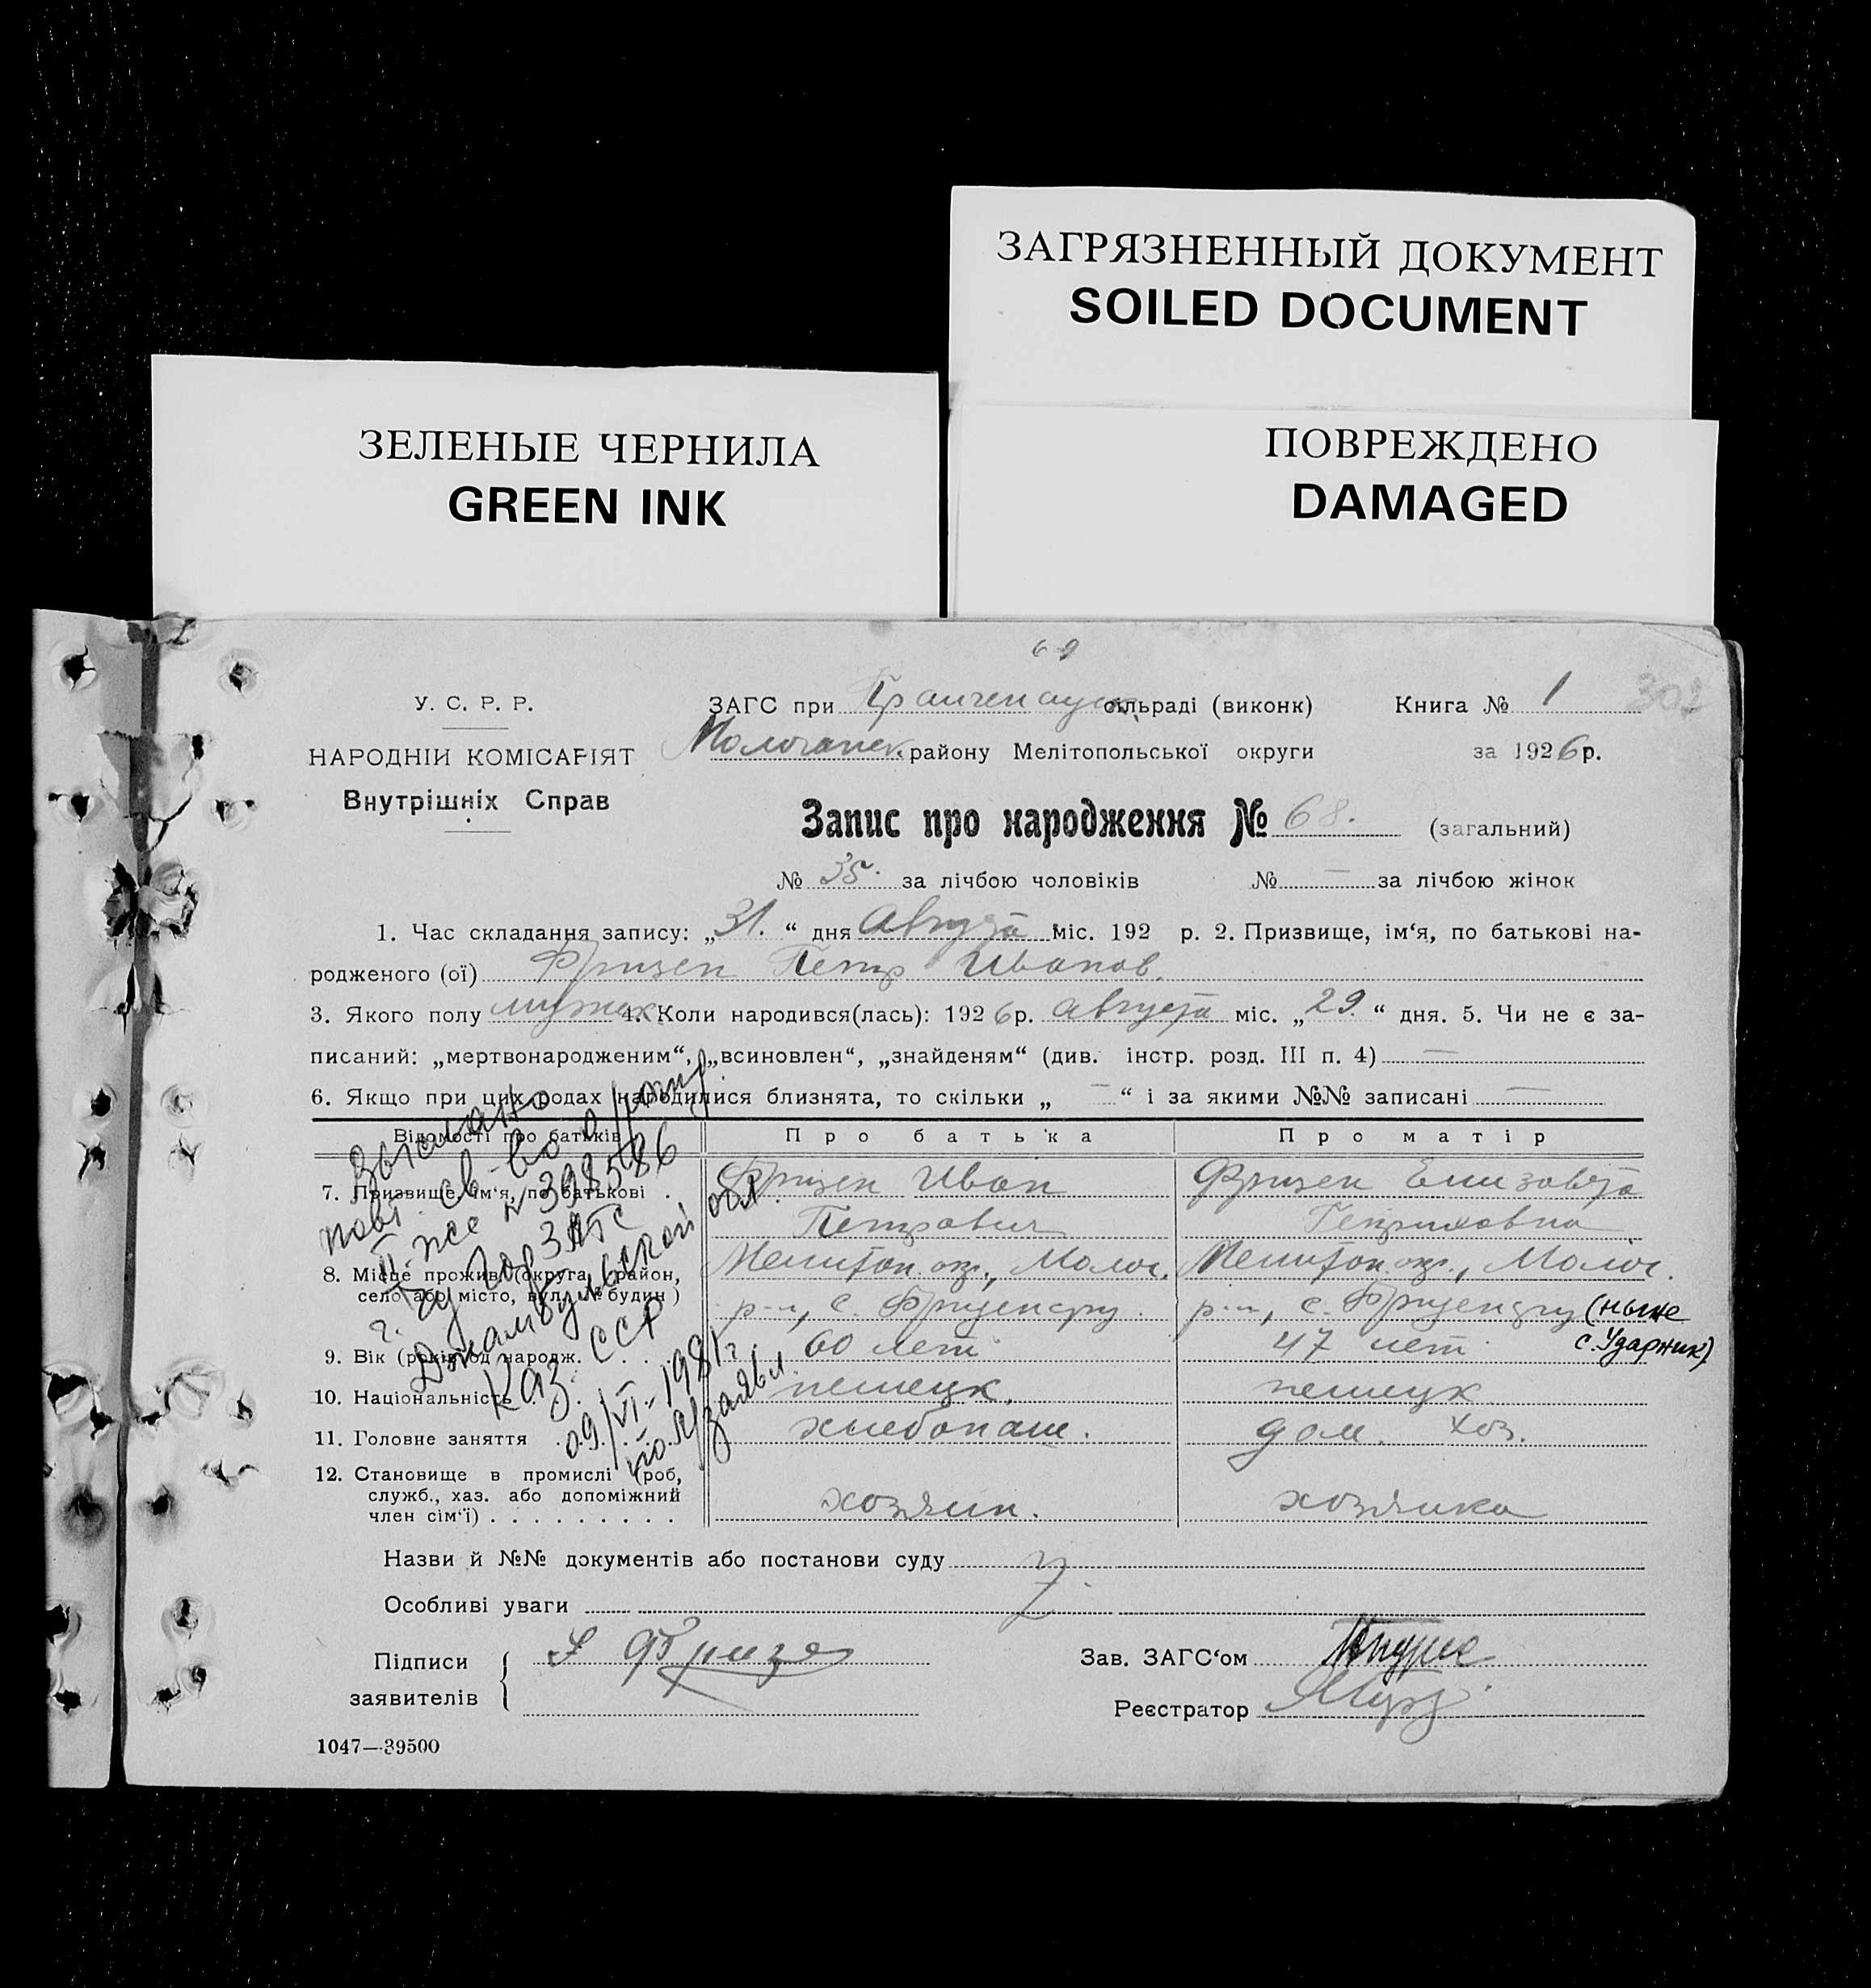 ЗАГРЯЗНЕННЫЙ ДОКУМЕНТ
SOILED DOCUMENT
ЗЕЛЕНЫЕ ЧЕРНИЛА
GREEN INK
ПОВРЕЖДЕНО
DAMAGED
69
У. С. Р. Р.
НАРОДНІЙ КОМІСАРІЯТ
Внутрішніх Справ
ЗАГС при сільраді (виконк) Книга № 1
Молочанск. району Мелітопольської округи за 1926 р.
Запис про народження № 68. (загальний)
№ 35. за лічбою чоловіків № — за лічбою жінок
1. Час складання запису: „31.“ дня Августа міс. 192 р. 2. Призвище, ім‘я, по батькові на-
родженого (ої) Фризен Петр Иванов.
3. Якого полу мужск. 4. Коли народився(лась): 1926 р. Августа міс. „29“ дня. 5. Чи не є за-
писаний: „мертвонародженим“, „всиновлен“, „знайденям“ (див. інстр. розд. III п. 4) —
6. Якщо при цих родах народилися близнята, то скільки „—“ і за якими №№ записані —
Відомості про батьків Про батька Про матір
7. Призвище, ім‘я, по батькові . Фризен Иван Фризен Елизавета
Петрович Генриховна
8. Місце прожив. (округа, район, Мелитоп. окр., Молоч. Мелитоп. окр., Молоч.
село або місто, вул., № будин) р-н, с. р-н, с. (ныне
9. Вік (років од народж. 60 лет 47 лет с. Ударник)
10. Національність немецк. немецк.
11. Головне заняття хлебопаш. дом. хоз.
12. Становище в промислі (роб,
служб., хаз. або допоміжний
член сім‘ї) . . . . . . . . . хозяин. хозяйка
Выслано
повт. св-во о/рожд
II-ЖС № 398586
г. Чу гор ЗАГС
Джамбульской обл.
Каз. ССР
09/VI-1981 г.
по л/заявл.
Назви й №№ документів або постанови суду
Особливі уваги
Підписи
заявителів
Зав. ЗАГС‘ом
Реєстратор
1047—39500